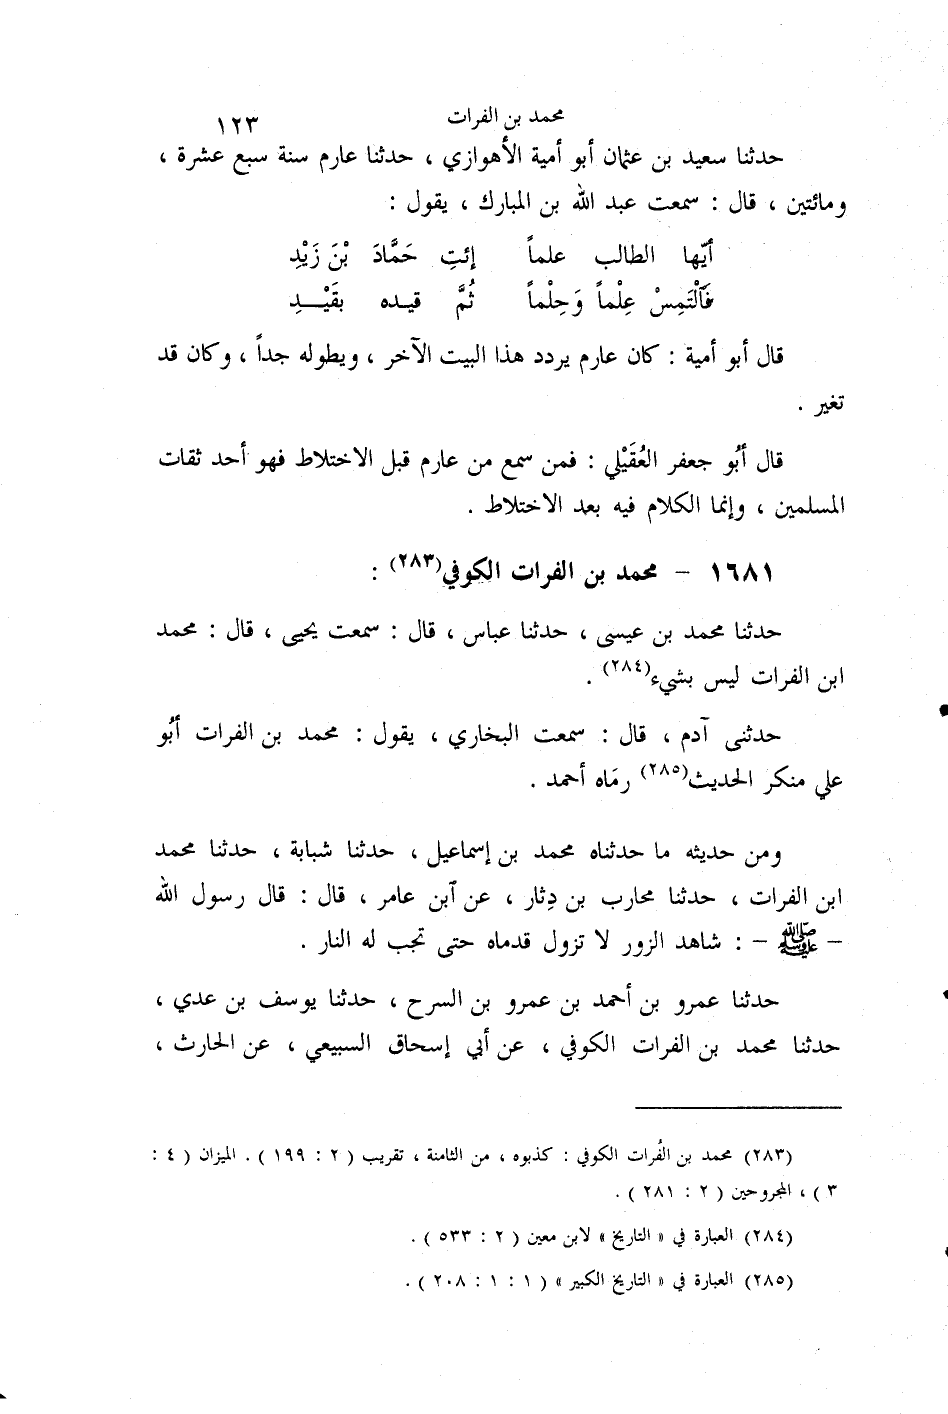 محمد بن الفرات ١٢٣
حدثنا سعيد بن عثمان أبو أمية الأهوازي ، حدثنا عارم سنة سبع عشرة ،
ومائتين ، قال : سمعت عبد الله بن المبارك ، يقول :
أيّها الطالب علماً إئتِ حَمَّادَ بْنَ زَيْدِ
فَٱلْتَمِسْ عِلْماً وَحِلْماً ثُمَّ قيـده بقَيْـــدِ
قال أبو أمية : كان عارم يردد هذا البيت الآخر ، ويطوله جداً ، وكان قد
تغير .
قال أبُو جعفر العُقَيْلي : فمن سمع من عارم قبل الاختلاط فهو أحد ثقات
المسلمين ، وإنما الكلام فيه بعد الاختلاط .
١٦٨١ - محمد بن الفرات الكوفي(٢٨٣) :
حدثنا محمد بن عيسى ، حدثنا عباس ، قال : سمعت يحيى ، قال : محمد
ابن الفرات ليس بشيء(٢٨٤) .
حدثنى آدم ، قال : سمعت البخاري ، يقول : محمد بن الفرات أبُو
علي منكر الحديث(٢٨٥) رمَاه أحمد .
ومن حديثه ما حدثناه محمد بن إسماعيل ، حدثنا شبابة ، حدثنا محمد
ابن الفرات ، حدثنا محارب بن دِثار ، عن ٱبن عامر ، قال : قال رسول الله
- ﷺ - : شاهد الزور لا تزول قدماه حتى تجب له النار .
حدثنا عمرو بن أحمد بن عمرو بن السرح ، حدثنا يوسف بن عدي ،
حدثنا محمد بن الفرات الكوفي ، عن أبي إسحاق السبيعي ، عن الحارث ،
(٢٨٣) محمد بن الفُرات الكوفي : كذبوه ، من الثامنة ، تقريب ( ٢ : ١٩٩ ) . الميزان ( ٤ :
٣ ) ، المجروحين ( ٢ : ٢٨١ ) .
(٢٨٤) العبارة في « التاريخ » لابن معين ( ٢ : ٥٣٣ ) .
(٢٨٥) العبارة في « التاريخ الكبير » ( ١ : ١ : ٢٠٨ ) .